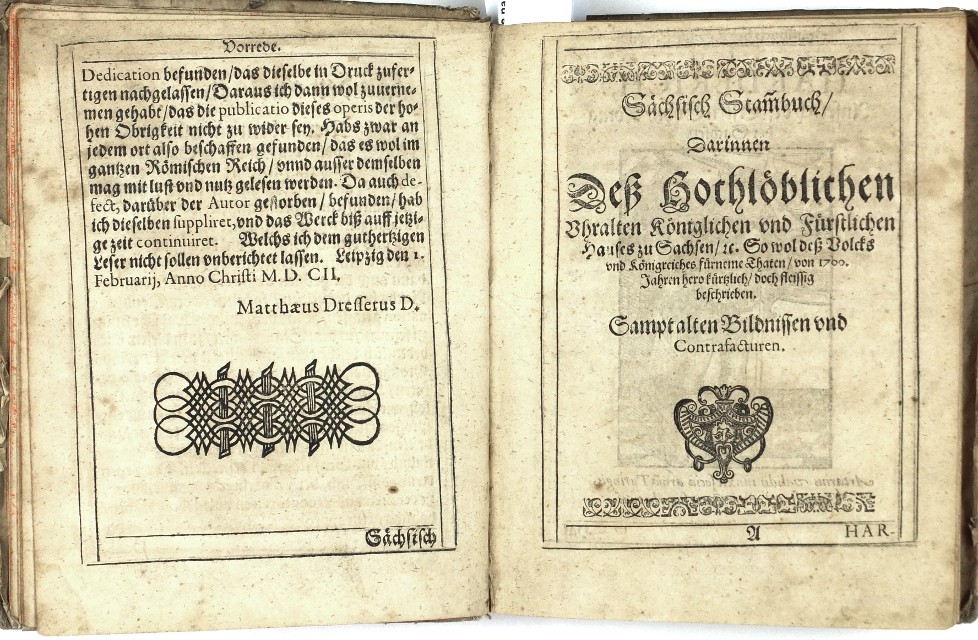 Vorrede.
Dedication befunden/das dieselbe in Druck zufer-
tigen nachgelassen/Daraus ich dann wol zuuerne-
men gehabt/das die publicatio dieses operis der ho-
hen Obrigkeit nicht zu wider sey. Habs zwar an
jedem ort also beschaffen gefunden/das es wol im
gantzen Römischen Reich/vnnd ausser demselben
mag mit lust vnd nutz gelesen werden. Da auch de-
fect, darüber der Autor gestorben/befunden/hab
ich dieselben suppliret,vnd das Werck biß auff jetzi-
ge zeit continuiret. Welchs ich dem guthertzigen
Leser nicht sollen vnberichtet lassen. Leipzig den 1.
Februarij, Anno Christi M. D. CII,
Matthæus Dresserus D.
Sächsisch
Sächsisch Stam̄buch/
Darinnen
Deß Hochlöblichen
Vhralten Königlichen vnd Fürstlichen
Hauses zu Sachsen/ꝛc. So wol deß Volcks
vnd Königreiches fürneme Thaten/von 1700.
Jahren hero kürtzlich/doch fleissig
beschrieben.
Sampt alten Bildnissen vnd
Contrafacturen.
A
HAR-